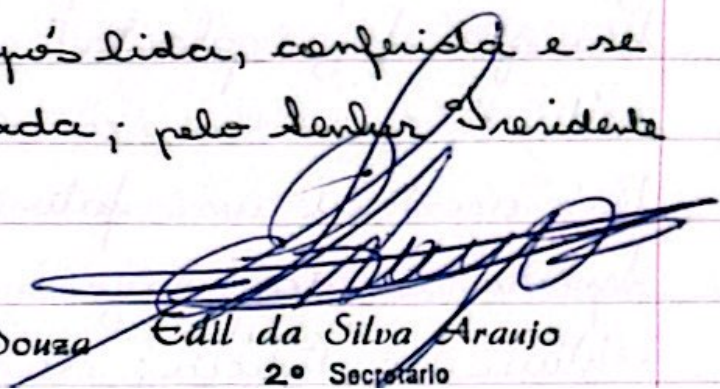 pós lida, conferida e se
ada; pelo Senhor Presidente
Souza Edil da Silva Araujo
2º Secretário